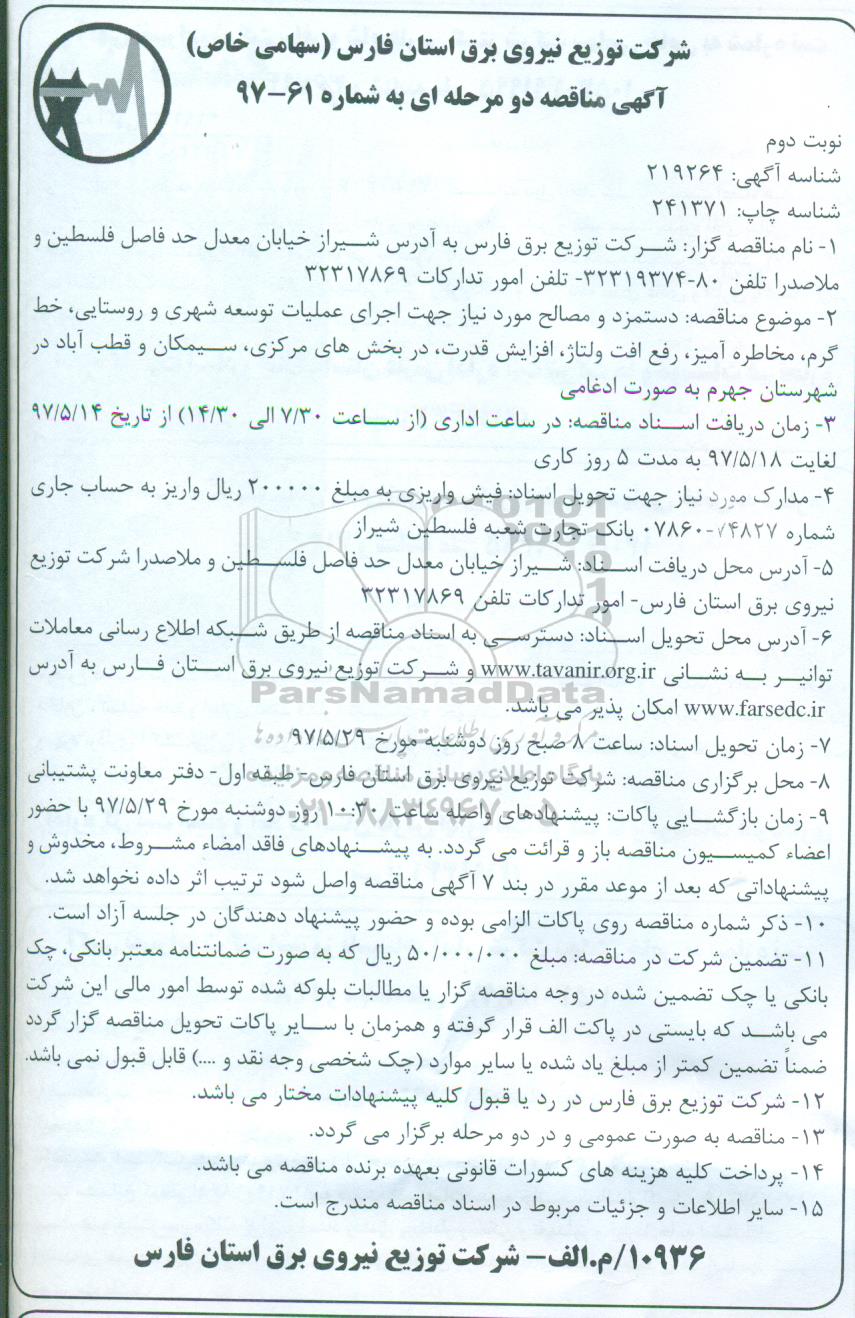 شرکت توزیع نیروی برق استان فارس (سهامی خاص)
آگهی مناقصه دو مرحله ای به شماره ۶۱-۹۷
نوبت دوم
شناسه آگهی: ۲۱۹۲۶۴
شناسه چاپ: ۲۴۱۳۷۱
۱- نام مناقصه گزار: شرکت توزیع برق فارس به آدرس شیراز خیابان معدل حد فاصل فلسطین و
ملاصدرا تلفن ۸۰-۳۲۳۱۹۳۷۴- تلفن امور تدارکات ۳۲۳۱۷۸۶۹
۲- موضوع مناقصه: دستمزد و مصالح مورد نیاز جهت اجرای عملیات توسعه شهری و روستایی، خط
گرم، مخاطره آمیز، رفع افت ولتاژ، افزایش قدرت، در بخش های مرکزی، سیمکان و قطب آباد در
شهرستان جهرم به صورت ادغامی
۳- زمان دریافت اسناد مناقصه: در ساعت اداری (از ساعت ۷/۳۰ الی ۱۴/۳۰) از تاریخ ۹۷/۵/۱۴
لغایت ۹۷/۵/۱۸ به مدت ۵ روز کاری
۴- مدارک مورد نیاز جهت تحویل اسناد: فیش واریزی به مبلغ ۲۰۰۰۰۰ ریال واریز به حساب جاری
شماره ۷۴۸۲۷-۰۷۸۶۰ بانک تجارت شعبه فلسطین شیراز
۵- آدرس محل دریافت اسناد: شیراز خیابان معدل حد فاصل فلسطین و ملاصدرا شرکت توزیع
نیروی برق استان فارس- امور تدارکات تلفن ۳۲۳۱۷۸۶۹
۶- آدرس محل تحویل اسناد: دسترسی به اسناد مناقصه از طریق شبکه اطلاع رسانی معاملات
توانیر به نشانی www.tavanir.org.ir و شرکت توزیع نیروی برق استان فارس به آدرس
ParsNamadData
www.farsedc.ir امکان پذیر می باشد.
۷- زمان تحویل اسناد: ساعت ۸ صبح روز دوشنبه مورخ ۹۷/۵/۲۹
۸- محل برگزاری مناقصه: شرکت توزیع نیروی برق استان فارس- طبقه اول- دفتر معاونت پشتیبانی
۹- زمان بازگشایی پاکات: پیشنهادهای واصله ساعت ۱۰:۳۰ روز دوشنبه مورخ ۹۷/۵/۲۹ با حضور
۰۲۱-۸۸۳۴۹۶۷۰-۵
اعضاء کمیسیون مناقصه باز و قرائت می گردد. به پیشنهادهای فاقد امضاء مشروط، مخدوش و
پیشنهاداتی که بعد از موعد مقرر در بند ۷ آگهی مناقصه واصل شود ترتیب اثر داده نخواهد شد.
۱۰- ذکر شماره مناقصه روی پاکات الزامی بوده و حضور پیشنهاد دهندگان در جلسه آزاد است.
۱۱- تضمین شرکت در مناقصه: مبلغ ۵۰/۰۰۰/۰۰۰ ریال که به صورت ضمانتنامه معتبر بانکی، چک
بانکی یا چک تضمین شده در وجه مناقصه گزار یا مطالبات بلوکه شده توسط امور مالی این شرکت
می باشد که بایستی در پاکت الف قرار گرفته و همزمان با سایر پاکات تحویل مناقصه گزار گردد
ضمناً تضمین کمتر از مبلغ یاد شده یا سایر موارد (چک شخصی وجه نقد و ....) قابل قبول نمی باشد.
۱۲- شرکت توزیع برق فارس در رد یا قبول کلیه پیشنهادات مختار می باشد.
۱۳- مناقصه به صورت عمومی و در دو مرحله برگزار می گردد.
۱۴- پرداخت کلیه هزینه های کسورات قانونی بعهده برنده مناقصه می باشد.
۱۵- سایر اطلاعات و جزئیات مربوط در اسناد مناقصه مندرج است.
۱۰۹۳۶/م.الف- شرکت توزیع نیروی برق استان فارس